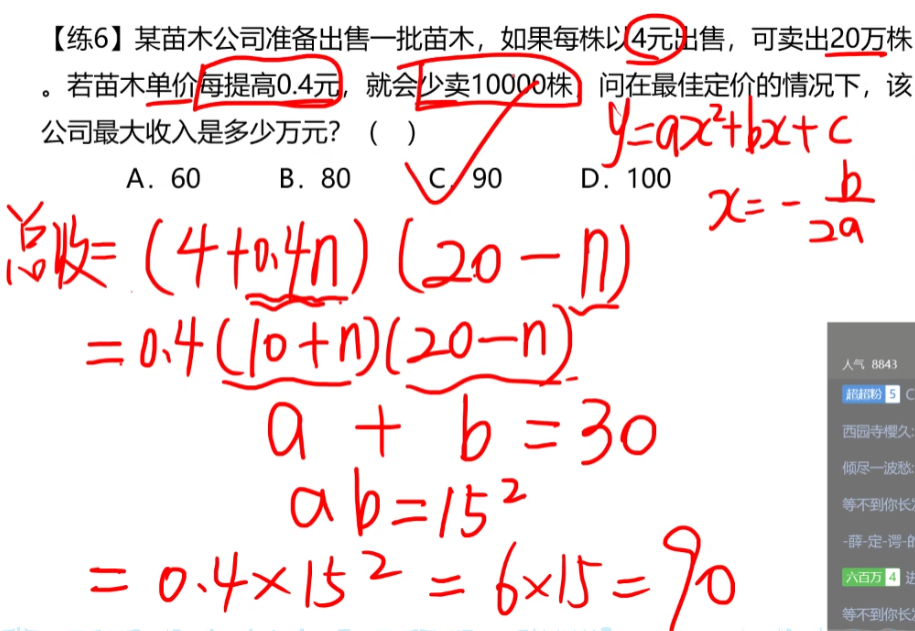 【练6】某苗木公司准备出售一批苗木，如果每株以4元出售，可卖出20万株
。若苗木单价每提高0.4元，就会少卖10000株，问在最佳定价的情况下，该
公司最大收入是多少万元？（ ）
A．60 B．80 C．90 D．100
y=ax²+bx+c
x=-b/2a
总收=(4+0.4n)(20-n)
=0.4(10+n)(20-n)
a+b=30
ab=15²
=0.4×15²=6×15=90
人气 8843
超超粉 5 C
西园寺樱久:
倾尽一波愁:
等不到你长
-薛-定-谔-的
六百万 4 进
等不到你长